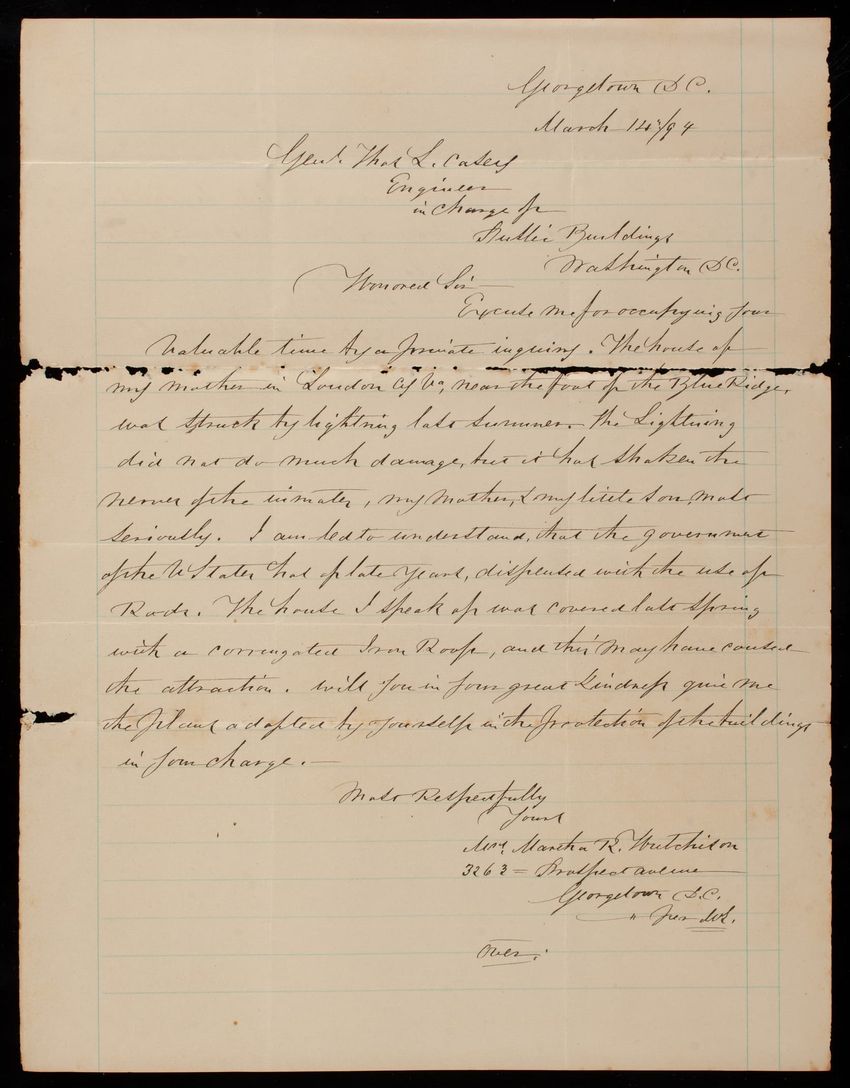 Georgetown D C.
March 14"/94
Genl. Thos L. Casey
Engineer
in charge of
Public Buildings
Washington D.C.
Honored Sir
Excuse me for occupying your
valuable time by a private inquiry. The house of
my mother in Loudon Cy Va, near the foot of the Blue Ridge,
was struck by lightning last summer. The Lightning
did not do much damage, but it has shaken the
nerves of the inmates, my mother, & my little son, most
seriously. I am led to understand, that the government
of the U States has of late years, dispensed with the use of
Rods. The house I speak of was covered last spring
with a corrugated Iron Roof, and this may have caused
the attraction. will you in your great kindness give me
the plans adopted by yourself in the protection of the buildings
in your charge. —
Most Respectfully
Yours
Mrs. Martha R. Hutchison
3263 = Prospect avenue
Georgetown D.C.
" per
Over.